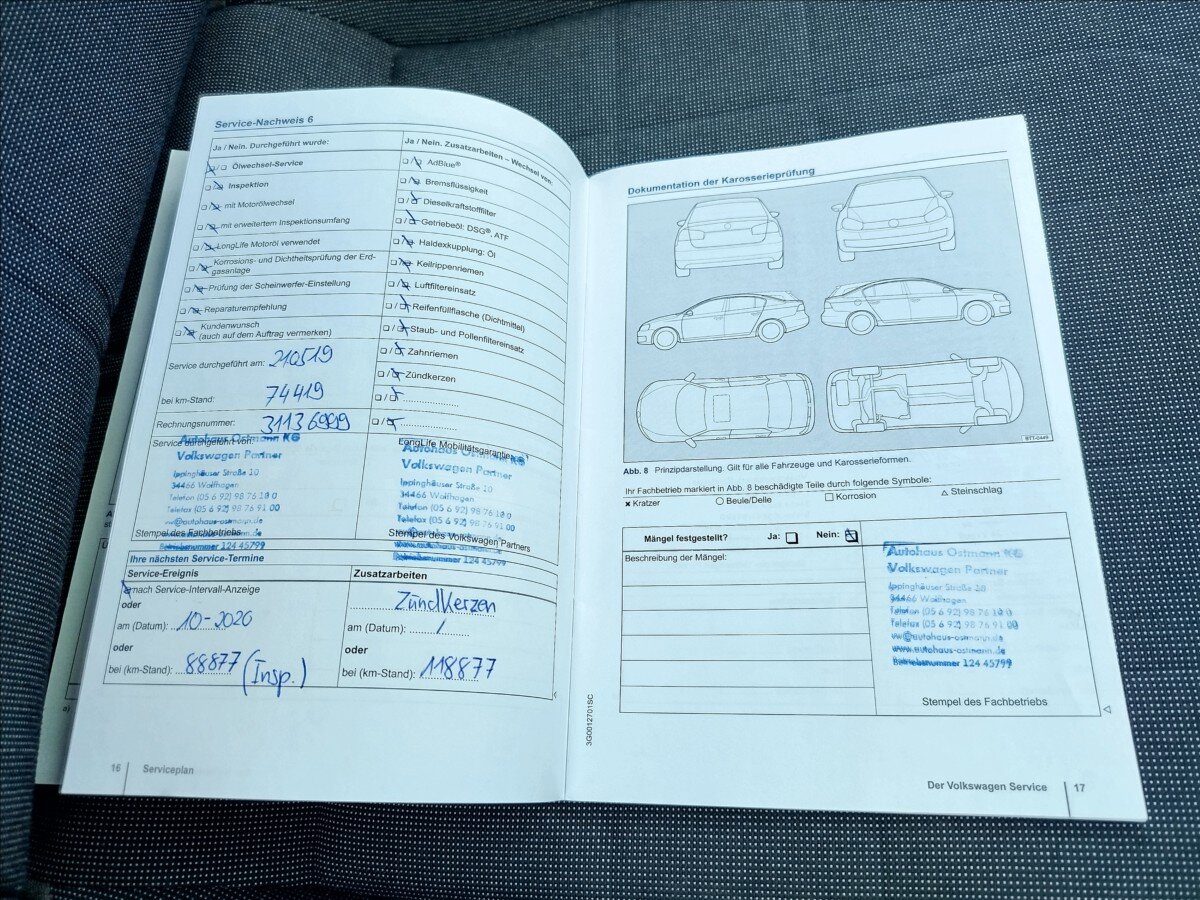 Service-Nachweis 6
Ja / Nein. Durchgeführt wurde:
Ölwechsel-Service
Inspektion
mit Motorölwechsel
mit erweitertem Inspektionsumfang
LongLife Motoröl verwendet
Korrosions- und Dichtheitsprüfung der Erd-
gasanlage
Prüfung der Scheinwerfer-Einstellung
Reparaturempfehlung
Kundenwunsch
(auch auf dem Auftrag vermerken)
Service durchgeführt am: 210519
bei km-Stand: 74419
Rechnungsnummer: 31136999
Ja / Nein. Zusatzarbeiten – Wechsel von:
AdBlue®
Bremsflüssigkeit
Dieselkraftstofffilter
Getriebeöl: DSG®, ATF
Haldexkupplung: Öl
Keilrippenriemen
Luftfiltereinsatz
Reifenfüllflasche (Dichtmittel)
Staub- und Pollenfiltereinsatz
Zahnriemen
Zündkerzen
Service durchgeführt von:
Autohaus Ostmann KG
Volkswagen Partner
Ippinghäuser Straße 10
34466 Wolfhagen
Telefon (05 6 92) 98 76 10 0
Telefax (05 6 92) 98 76 91 00
vw@autohaus-ostmann.de
Betriebsnummer 124 45799
Stempel des Fachbetriebs
LongLife Mobilitätsgarantie
Autohaus Ostmann KG
Volkswagen Partner
Ippinghäuser Straße 10
34466 Wolfhagen
Telefon (05 6 92) 98 76 10 0
Telefax (05 6 92) 98 76 91 00
vw@autohaus-ostmann.de
www.autohaus-ostmann.de
Betriebsnummer 124 45799
Stempel des Volkswagen Partners
Ihre nächsten Service-Termine
Service-Ereignis
nach Service-Intervall-Anzeige
oder
am (Datum): 10-2020
oder
bei (km-Stand): 88877 (Insp.)
Zusatzarbeiten
Zündkerzen
am (Datum): /
oder
bei (km-Stand): 118877
16 Serviceplan
3G0012701SC
Dokumentation der Karosserieprüfung
BTT-0449
Abb. 8 Prinzipdarstellung. Gilt für alle Fahrzeuge und Karosserieformen.
Ihr Fachbetrieb markiert in Abb. 8 beschädigte Teile durch folgende Symbole:
Kratzer Beule/Delle Korrosion Steinschlag
Mängel festgestellt? Ja: Nein:
Beschreibung der Mängel:
Autohaus Ostmann KG
Volkswagen Partner
Ippinghäuser Straße 10
34466 Wolfhagen
Telefon (05 6 92) 98 76 10 0
Telefax (05 6 92) 98 76 91 00
vw@autohaus-ostmann.de
www.autohaus-ostmann.de
Betriebsnummer 124 45799
Stempel des Fachbetriebs
Der Volkswagen Service 17